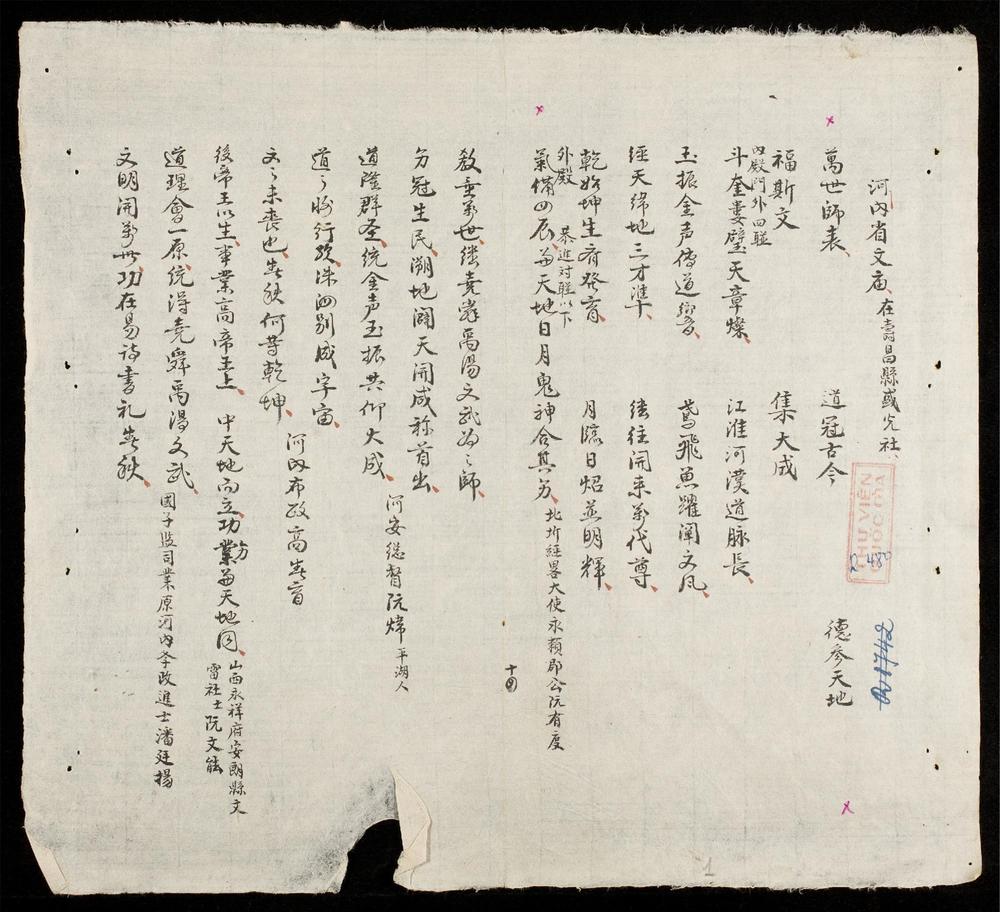 河內省文庙 在壽昌縣盛光社
萬世師表 道冠古今 德參天地
福斯文 集大成
內殿門外四聯
斗奎婁璧天章燦 江淮河漢道脉長
玉振金声傳道響 鳶飛魚躍闡文风
經天緯地三才準 继往開来萬代尊
乾始坤生齐發育 月臨日炤並明輝
外殿 恭進对聯以下
氣備四辰與天地日月鬼神合其 北圻經畧大使永賴郡公阮有度
教垂萬世继堯舜禹湯文武為之師
冠生民溯地闢天開成称首出
道隆群圣統金声玉振共仰大成 河安總督阮 平湖人
道之將行欤洙泗别成宇宙
文之未喪也春秋何等乾坤 河內布政高春育
後帝王以生事業高帝王上 中天地而立功業與天地同 山西永祥府安朗縣文
雷社士阮文能
道理會一原統得堯舜禹湯文武
文明開萬世功在易詩書礼春秋 國子監司業原河內李政進士潘廷揚
十四
THƯ VIỆN
QUỐC GIA
R 480
A 1742
1